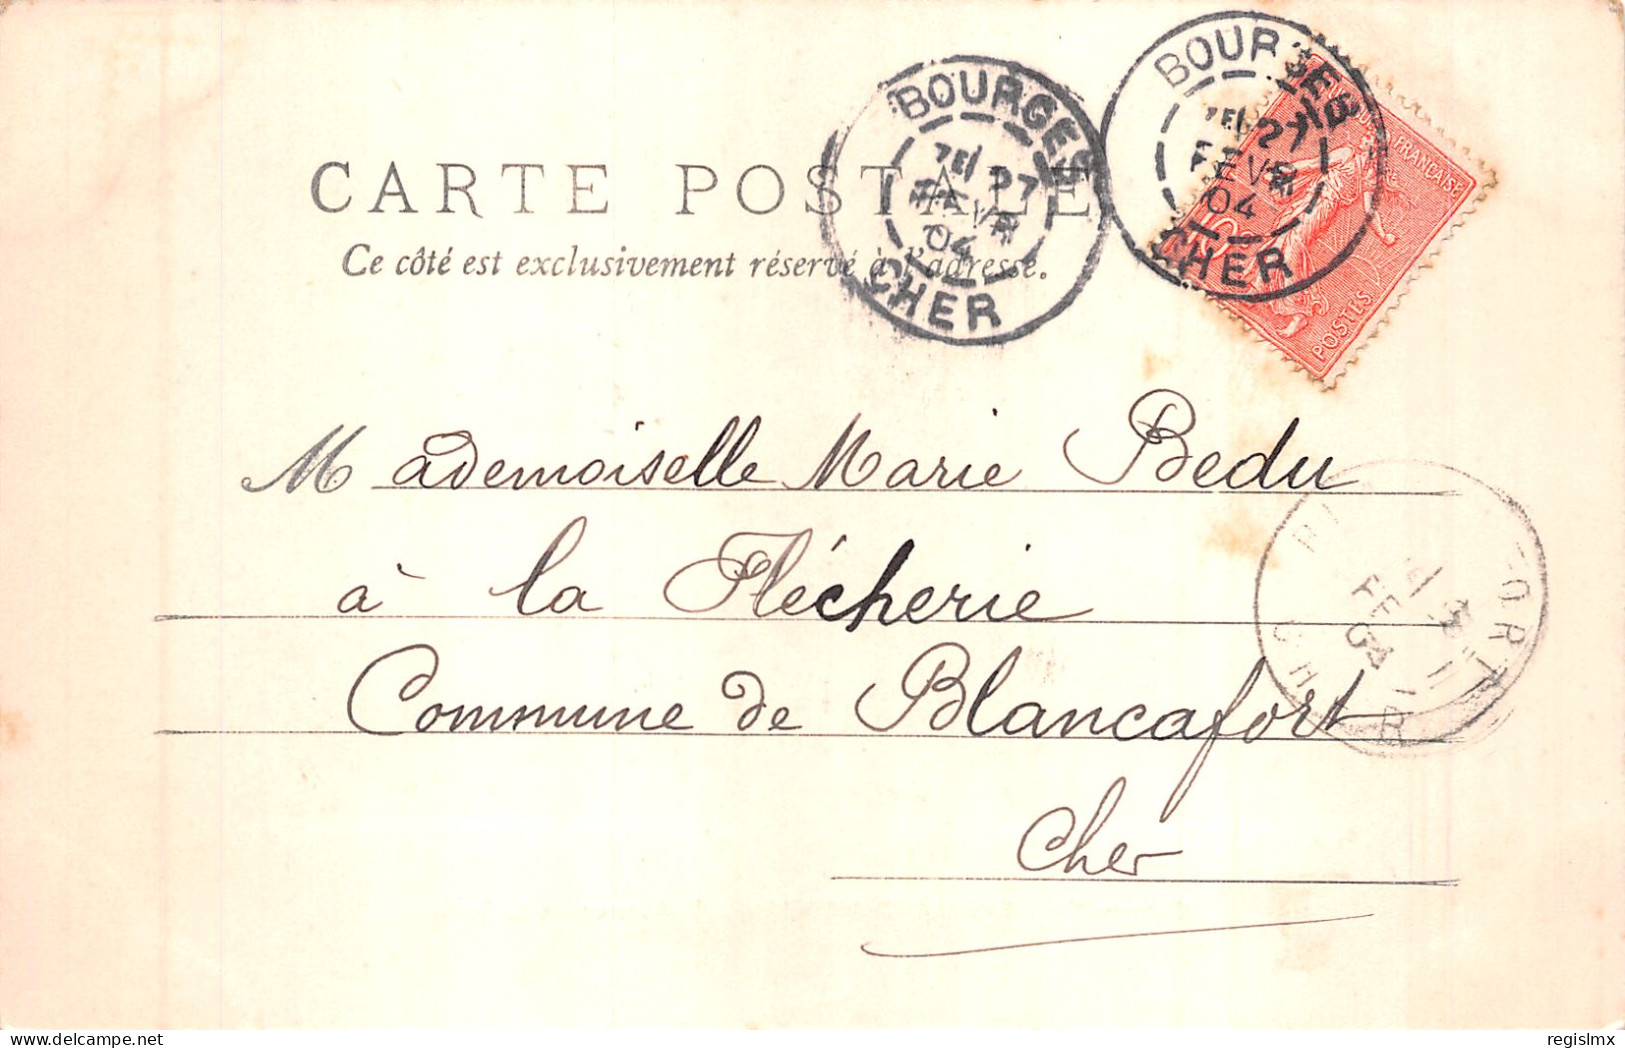 CARTE POSTALE
Ce côté est exclusivement réservé à l'adresse.
BOURGES
7E/ 27
FEVR
04
CHER
BOURGES
7E/ 27
FEVR
04
CHER
FRANÇAISE
POSTES
Mademoiselle Marie Bedu
à la Flécherie
Commune de Blancafort
Cher
FEVR
04
regislmx